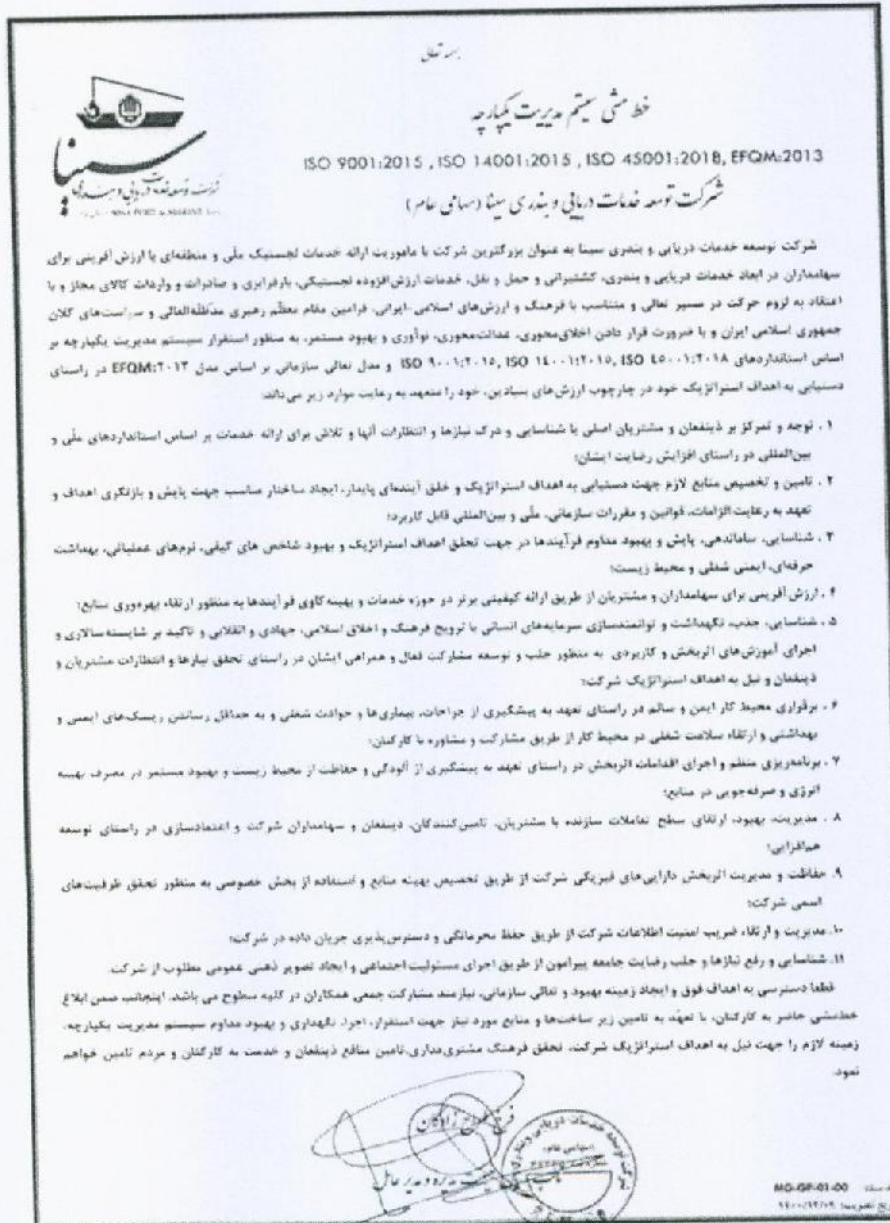 بسمه تعالی
خط مشی سیستم مدیریت یکپارچه
ISO 9001:2015 , ISO 14001:2015 , ISO 45001:2018, EFQM:2013
شرکت توسعه خدمات دریایی و بندری سینا (سهامی عام)
سینا
شرکت توسعه خدمات دریایی و بندری
SINA PORT & MARINE
شرکت توسعه خدمات دریایی و بندری سینا به عنوان بزرگترین شرکت با ماموریت ارائه خدمات لجستیک ملّی و منطقه‌ای با ارزش آفرینی برای
سهامداران در ابعاد خدمات دریایی و بندری، کشتیرانی و حمل و نقل، خدمات ارزش‌افزوده لجستیکی، بارفرابری و صادرات و واردات کالای مجاز و با
اعتقاد به لزوم حرکت در مسیر تعالی و متناسب با فرهنگ و ارزش‌های اسلامی-ایرانی، فرامین مقام معظّم رهبری مدّظلّه‌العالی و سیاست‌های کلان
جمهوری اسلامی ایران و با ضرورت قرار دادن اخلاق‌محوری، عدالت‌محوری، نوآوری و بهبود مستمر، به منظور استقرار سیستم مدیریت یکپارچه بر
اساس استانداردهای ISO ۹۰۰۱:۲۰۱۵, ISO ۱٤۰۰۱:۲۰۱۵, ISO ٤٥۰۰۱:۲۰۱۸ و مدل تعالی سازمانی بر اساس مدل EFQM:۲۰۱۳ در راستای
دستیابی به اهداف استراتژیک خود در چارچوب ارزش‌های بنیادین، خود را متعهد به رعایت موارد زیر می‌داند:
۱ . توجه و تمرکز بر ذینفعان و مشتریان اصلی با شناسایی و درک نیازها و انتظارات آنها و تلاش برای ارائه خدمات بر اساس استانداردهای ملّی و
بین‌المللی در راستای افزایش رضایت ایشان؛
۲ . تامین و تخصیص منابع لازم جهت دستیابی به اهداف استراتژیک و خلق آینده‌ای پایدار، ایجاد ساختار مناسب جهت پایش و بازنگری اهداف و
تعهد به رعایت الزامات، قوانین و مقررات سازمانی، ملّی و بین‌المللی قابل کاربرد؛
۳ . شناسایی، ساماندهی، پایش و بهبود مداوم فرآیندها در جهت تحقق اهداف استراتژیک و بهبود شاخص های کیفی، نرم‌های عملیاتی، بهداشت
حرفه‌ای، ایمنی شغلی و محیط زیست؛
۴ . ارزش آفرینی برای سهامداران و مشتریان از طریق ارائه کیفیتی برتر در حوزه خدمات و بهینه کاوی فرآیندها به منظور ارتقاء بهره‌وری منابع؛
۵ . شناسایی، جذب، نگهداشت و توانمندسازی سرمایه‌های انسانی با ترویج فرهنگ و اخلاق اسلامی، جهادی و انقلابی و تاکید بر شایسته‌سالاری و
اجرای آموزش‌های اثربخش و کاربردی به منظور جلب و توسعه مشارکت فعال و همراهی ایشان در راستای تحقق نیازها و انتظارات مشتریان و
ذینفعان و نیل به اهداف استراتژیک شرکت؛
۶ . برقراری محیط کار ایمن و سالم در راستای تعهد به پیشگیری از جراحات، بیماری‌ها و حوادث شغلی و به حداقل رساندن ریسک‌های ایمنی و
بهداشتی و ارتقاء سلامت شغلی در محیط کار از طریق مشارکت و مشاوره با کارکنان؛
۷ . برنامه‌ریزی منظم و اجرای اقدامات اثربخش در راستای تعهد به پیشگیری از آلودگی و حفاظت از محیط زیست و بهبود مستمر در مصرف بهینه
انرژی و صرفه‌جویی در منابع؛
۸ . مدیریت، بهبود، ارتقای سطح تعاملات سازنده با مشتریان، تامین‌کنندگان، ذینفعان و سهامداران شرکت و اعتمادسازی در راستای توسعه
هم‌افزایی؛
۹. حفاظت و مدیریت اثربخش دارایی‌های فیزیکی شرکت از طریق تخصیص بهینه منابع و استفاده از بخش خصوصی به منظور تحقق ظرفیت‌های
اسمی شرکت؛
۱۰. مدیریت و ارتقاء ضریب امنیت اطلاعات شرکت از طریق حفظ محرمانگی و دسترس‌پذیری جریان داده در شرکت؛
۱۱. شناسایی و رفع نیازها و جلب رضایت جامعه پیرامون از طریق اجرای مسئولیت اجتماعی و ایجاد تصویر ذهنی عمومی مطلوب از شرکت.
قطعا دسترسی به اهداف فوق و ایجاد زمینه بهبود و تعالی سازمانی، نیازمند مشارکت جمعی همکاران در کلیه سطوح می باشد. اینجانب ضمن ابلاغ
خط‌مشی حاضر به کارکنان، با تعهّد به تامین زیر ساخت‌ها و منابع مورد نیاز جهت استقرار، اجرا، نگهداری و بهبود مداوم سیستم مدیریت یکپارچه،
زمینه لازم را جهت نیل به اهداف استراتژیک شرکت، تحقق فرهنگ مشتری‌مداری،تامین منافع ذینفعان و خدمت به کارکنان و مردم تامین خواهم
نمود.
مدیره و مدیر عامل
شرکت توسعه خدمات دریایی و بندری
(سهامی عام)
MG-GP-01-00
تصویب: ۱۴۰۰/۱۲/۰۹